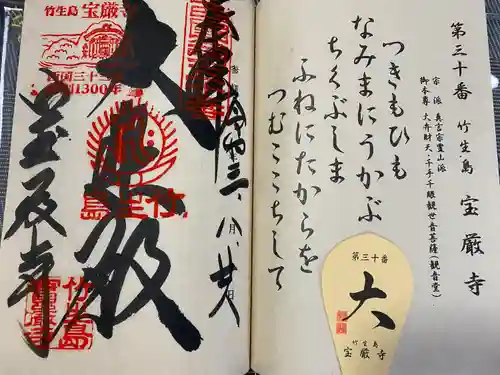 第三十番 竹生島 宝厳寺
宗派 真言宗豊山派
御本尊 大弁財天・千手千眼観世音菩薩(観音堂)
つきもひも
なみまにうかぶ
ちくぶしま
ふねにたからを
つむここちして
第三十番
大
竹生島
宝厳寺
奉拝
八月廿八日
大悲殿
宝厳寺
竹生島 宝厳寺
西国三十三所
1300年
竹生島
竹生島
宝厳寺